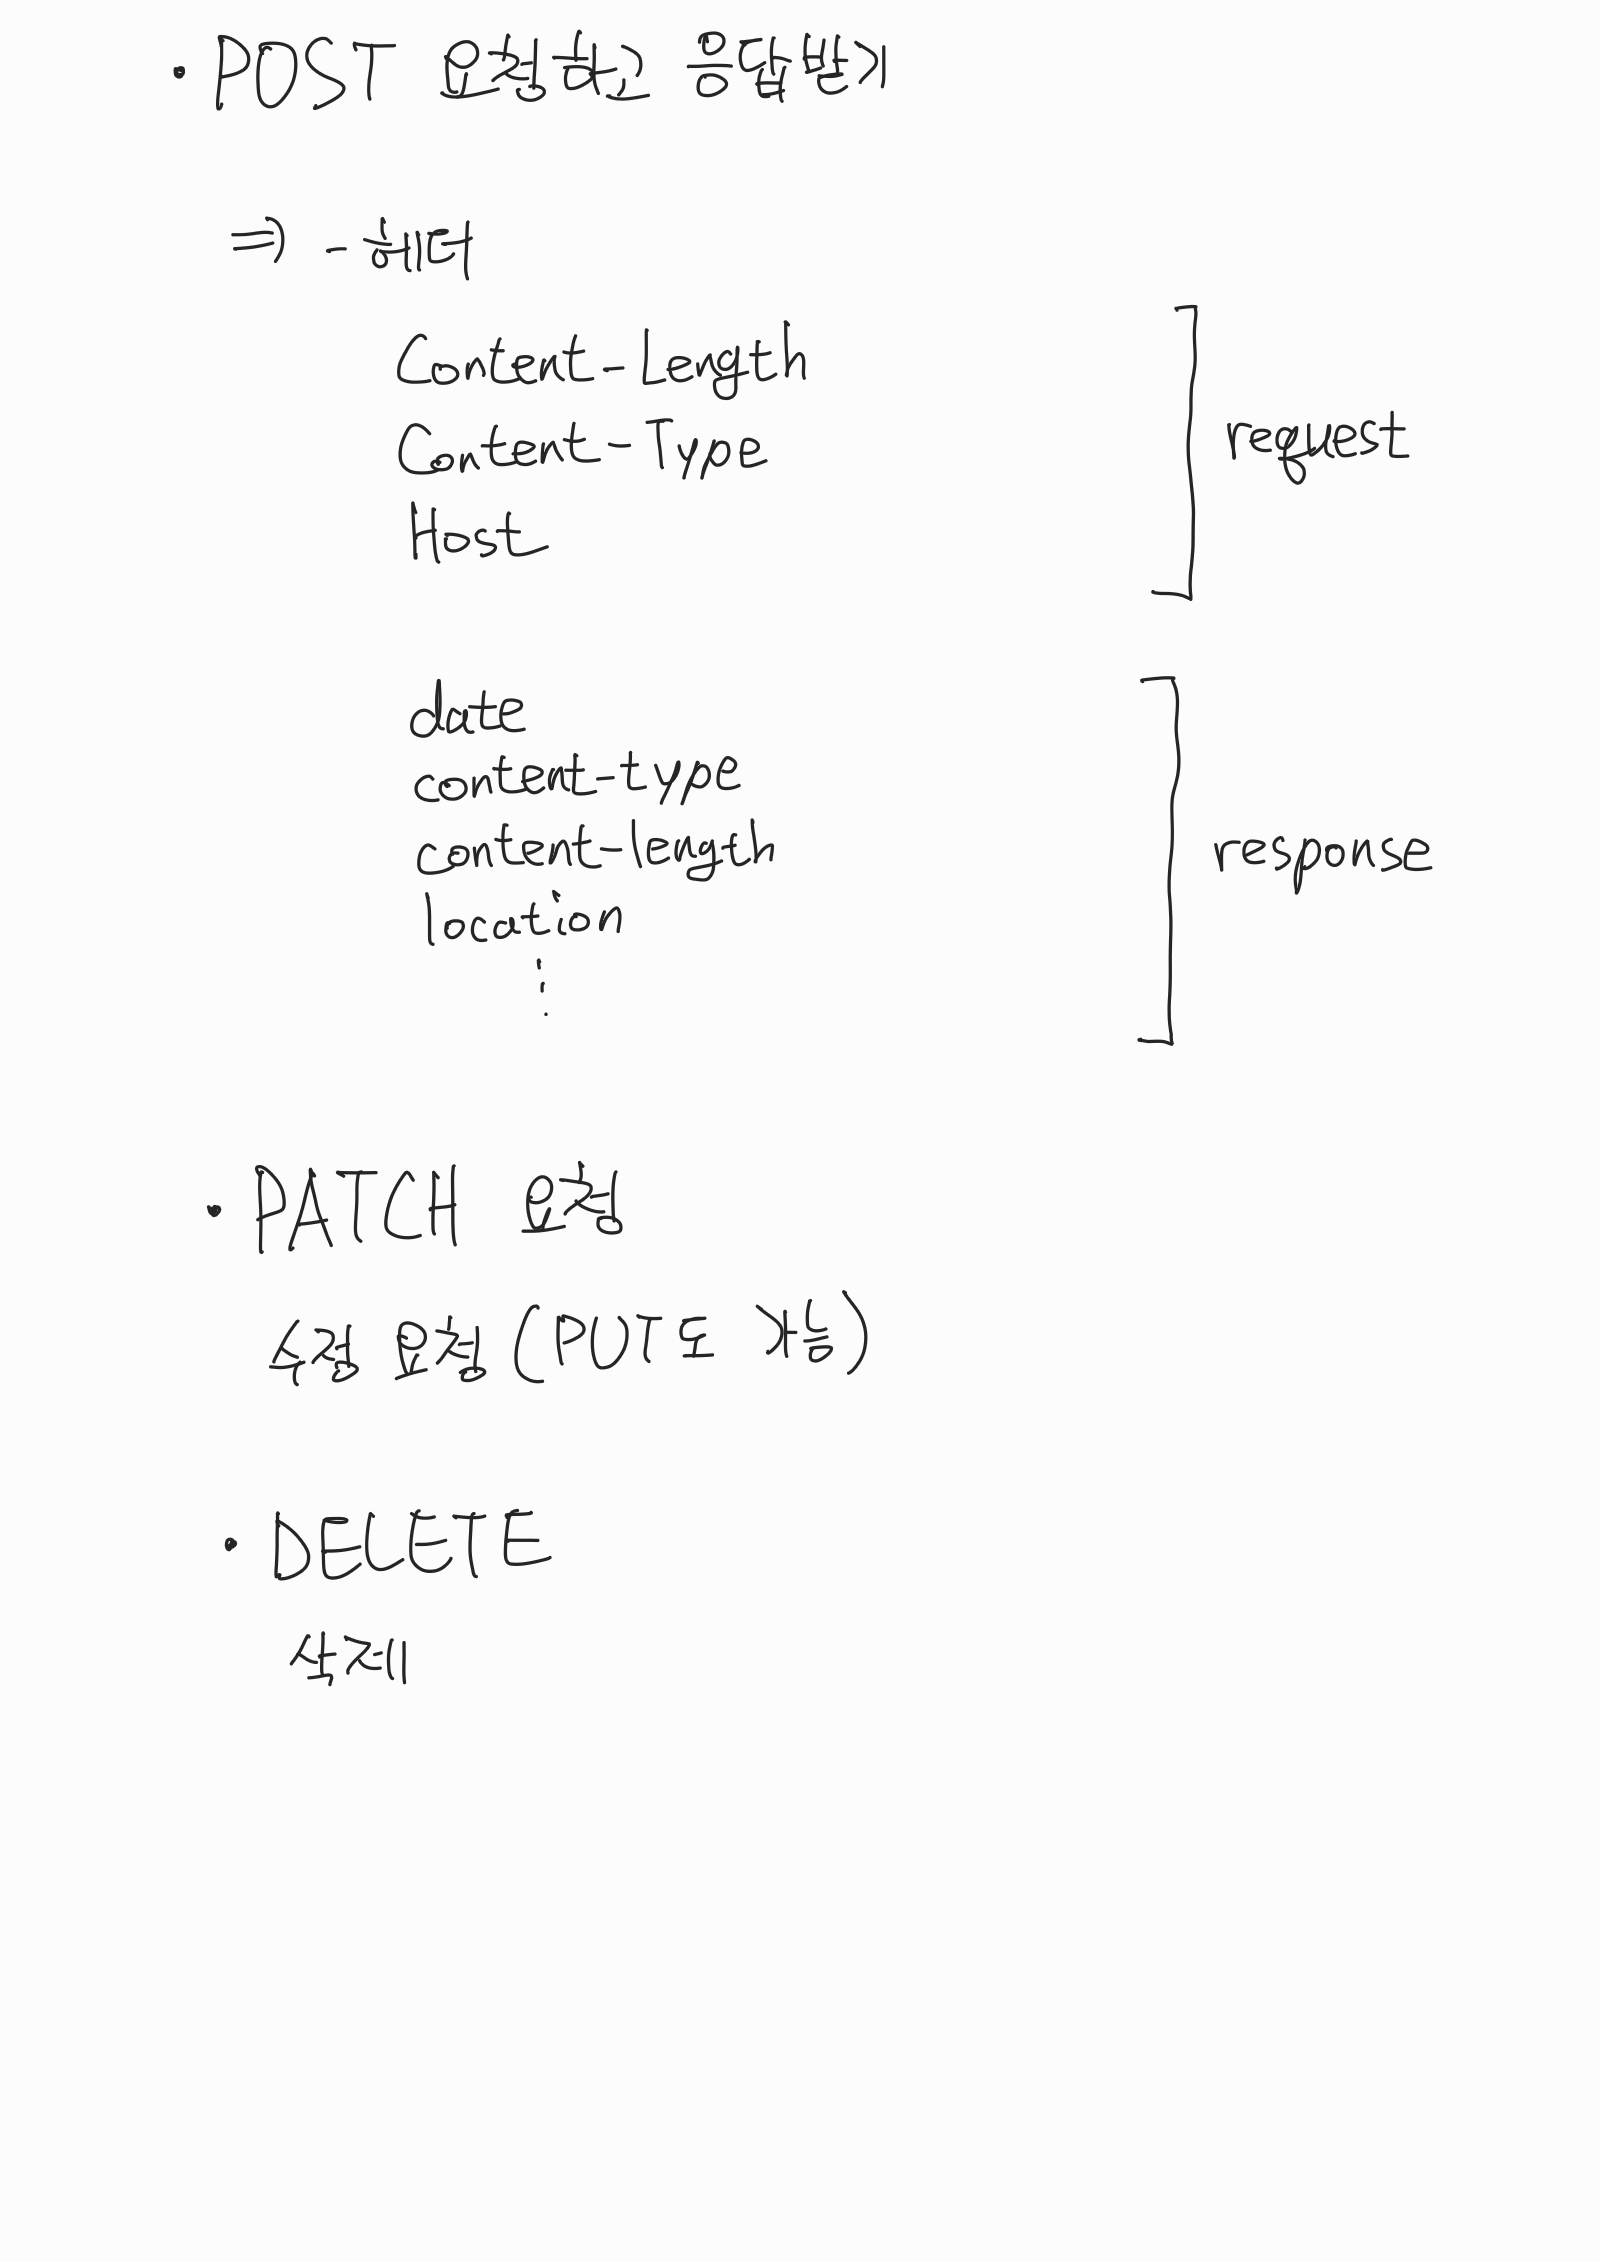 • POST 요청하고 응답받기
⇒ - 헤더
Content-Length
Content-Type
Host
request
date
content-type
content-length
location
⋮
response
• PATCH 요청
수정 요청 (PUT도 가능)
• DELETE
삭제